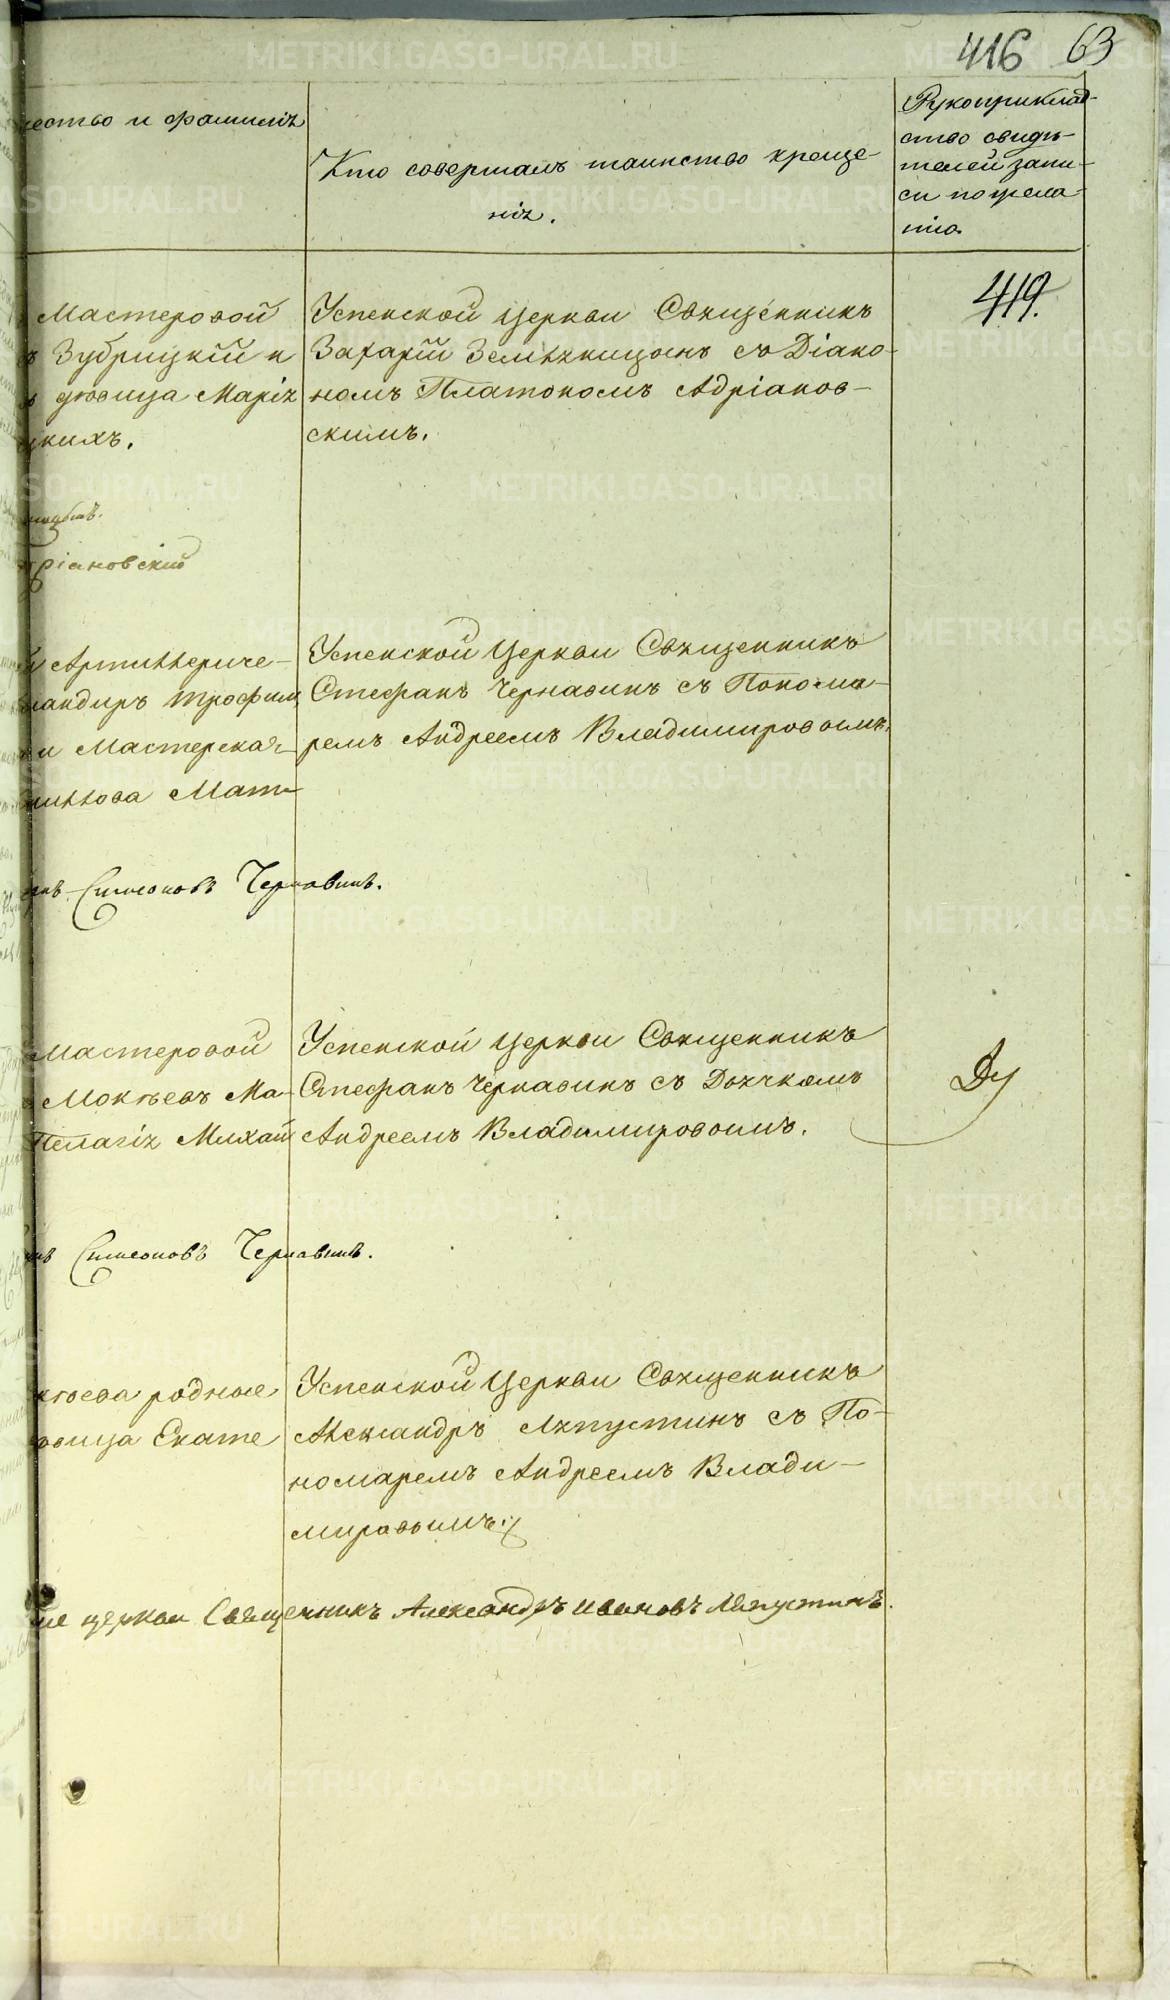 416 63
чество и фамилія
Кто совершалъ таинство креще-
нія.
Рукоприклад-
ство свидѣ-
телей запи-
си по жела-
нію.
Мастеровой
Зубрицкій и
дѣвица Марія
цкихъ.
Успенской церкви Священникъ
Захарій Земляницынъ съ Діако-
номъ Платономъ Адріанов-
скимъ.
419.
дріановскій
Артиллериче-
мандиръ Трофим
и Мастерская
Мат-
Успенской Церкви Священникъ
Стефанъ Чернавинъ съ Понома-
ремъ Андреемъ Владимировымъ.
Симеоновъ Чернавинъ.
Мастеровой
Мокѣевъ Ма-
Пелагія Михай
Успенской Церкви Священникъ
Стефанъ Чернавинъ съ Дьячкомъ
Андреемъ Владимировымъ.
Симеоновъ Чернавинъ.
кѣева родные
вица Екате
Успенской Церкви Священникъ
Александръ Ляпустинъ съ По-
номаремъ Андреемъ Влади-
мировымъ.
церкви Священникъ Александръ Ивановъ Ляпустинъ.
METRIKI.GASO-URAL.RU